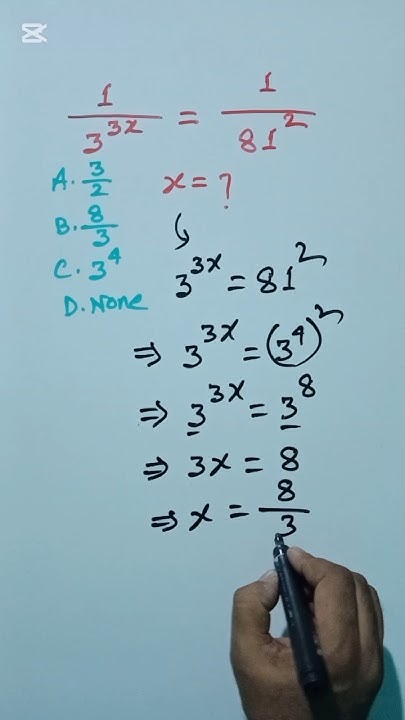 1/3^3x = 1/81^2
A. 3/2
x = ?
B. 8/3
C. 3^4
D. None
3^3x = 81^2
⇒ 3^3x = (3^4)^2
⇒ 3^3x = 3^8
⇒ 3x = 8
⇒ x = 8/3